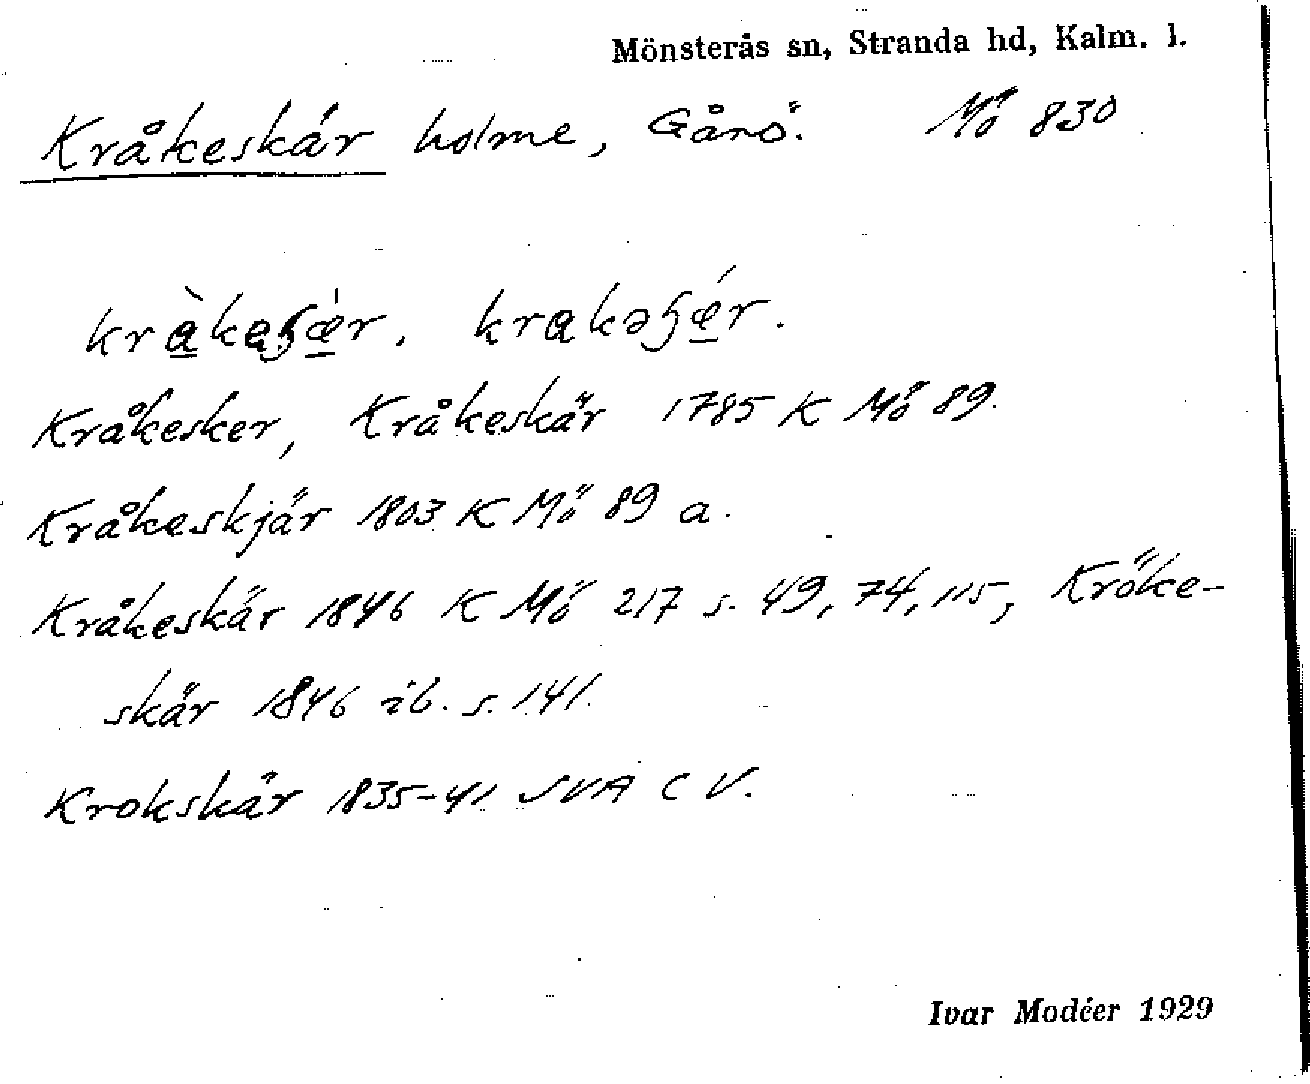 Mönsterås sn, Stranda hd, Kalm. l.
Kråkeskär holme, Gårö. Mö 830
kràkaʂæ̀r. krakəʂǽr.
Kråkesker, Kråkeskär 1785 K Mö 89.
Kråkeskjär 1803 K Mö 89 a.
Kråkeskär 1846 K Mö 217 s. 49, 74, 115, Kröke-
skär 1846 ib. s. 141.
Krokskär 1835-41 SVA C V.
Ivar Modéer 1929